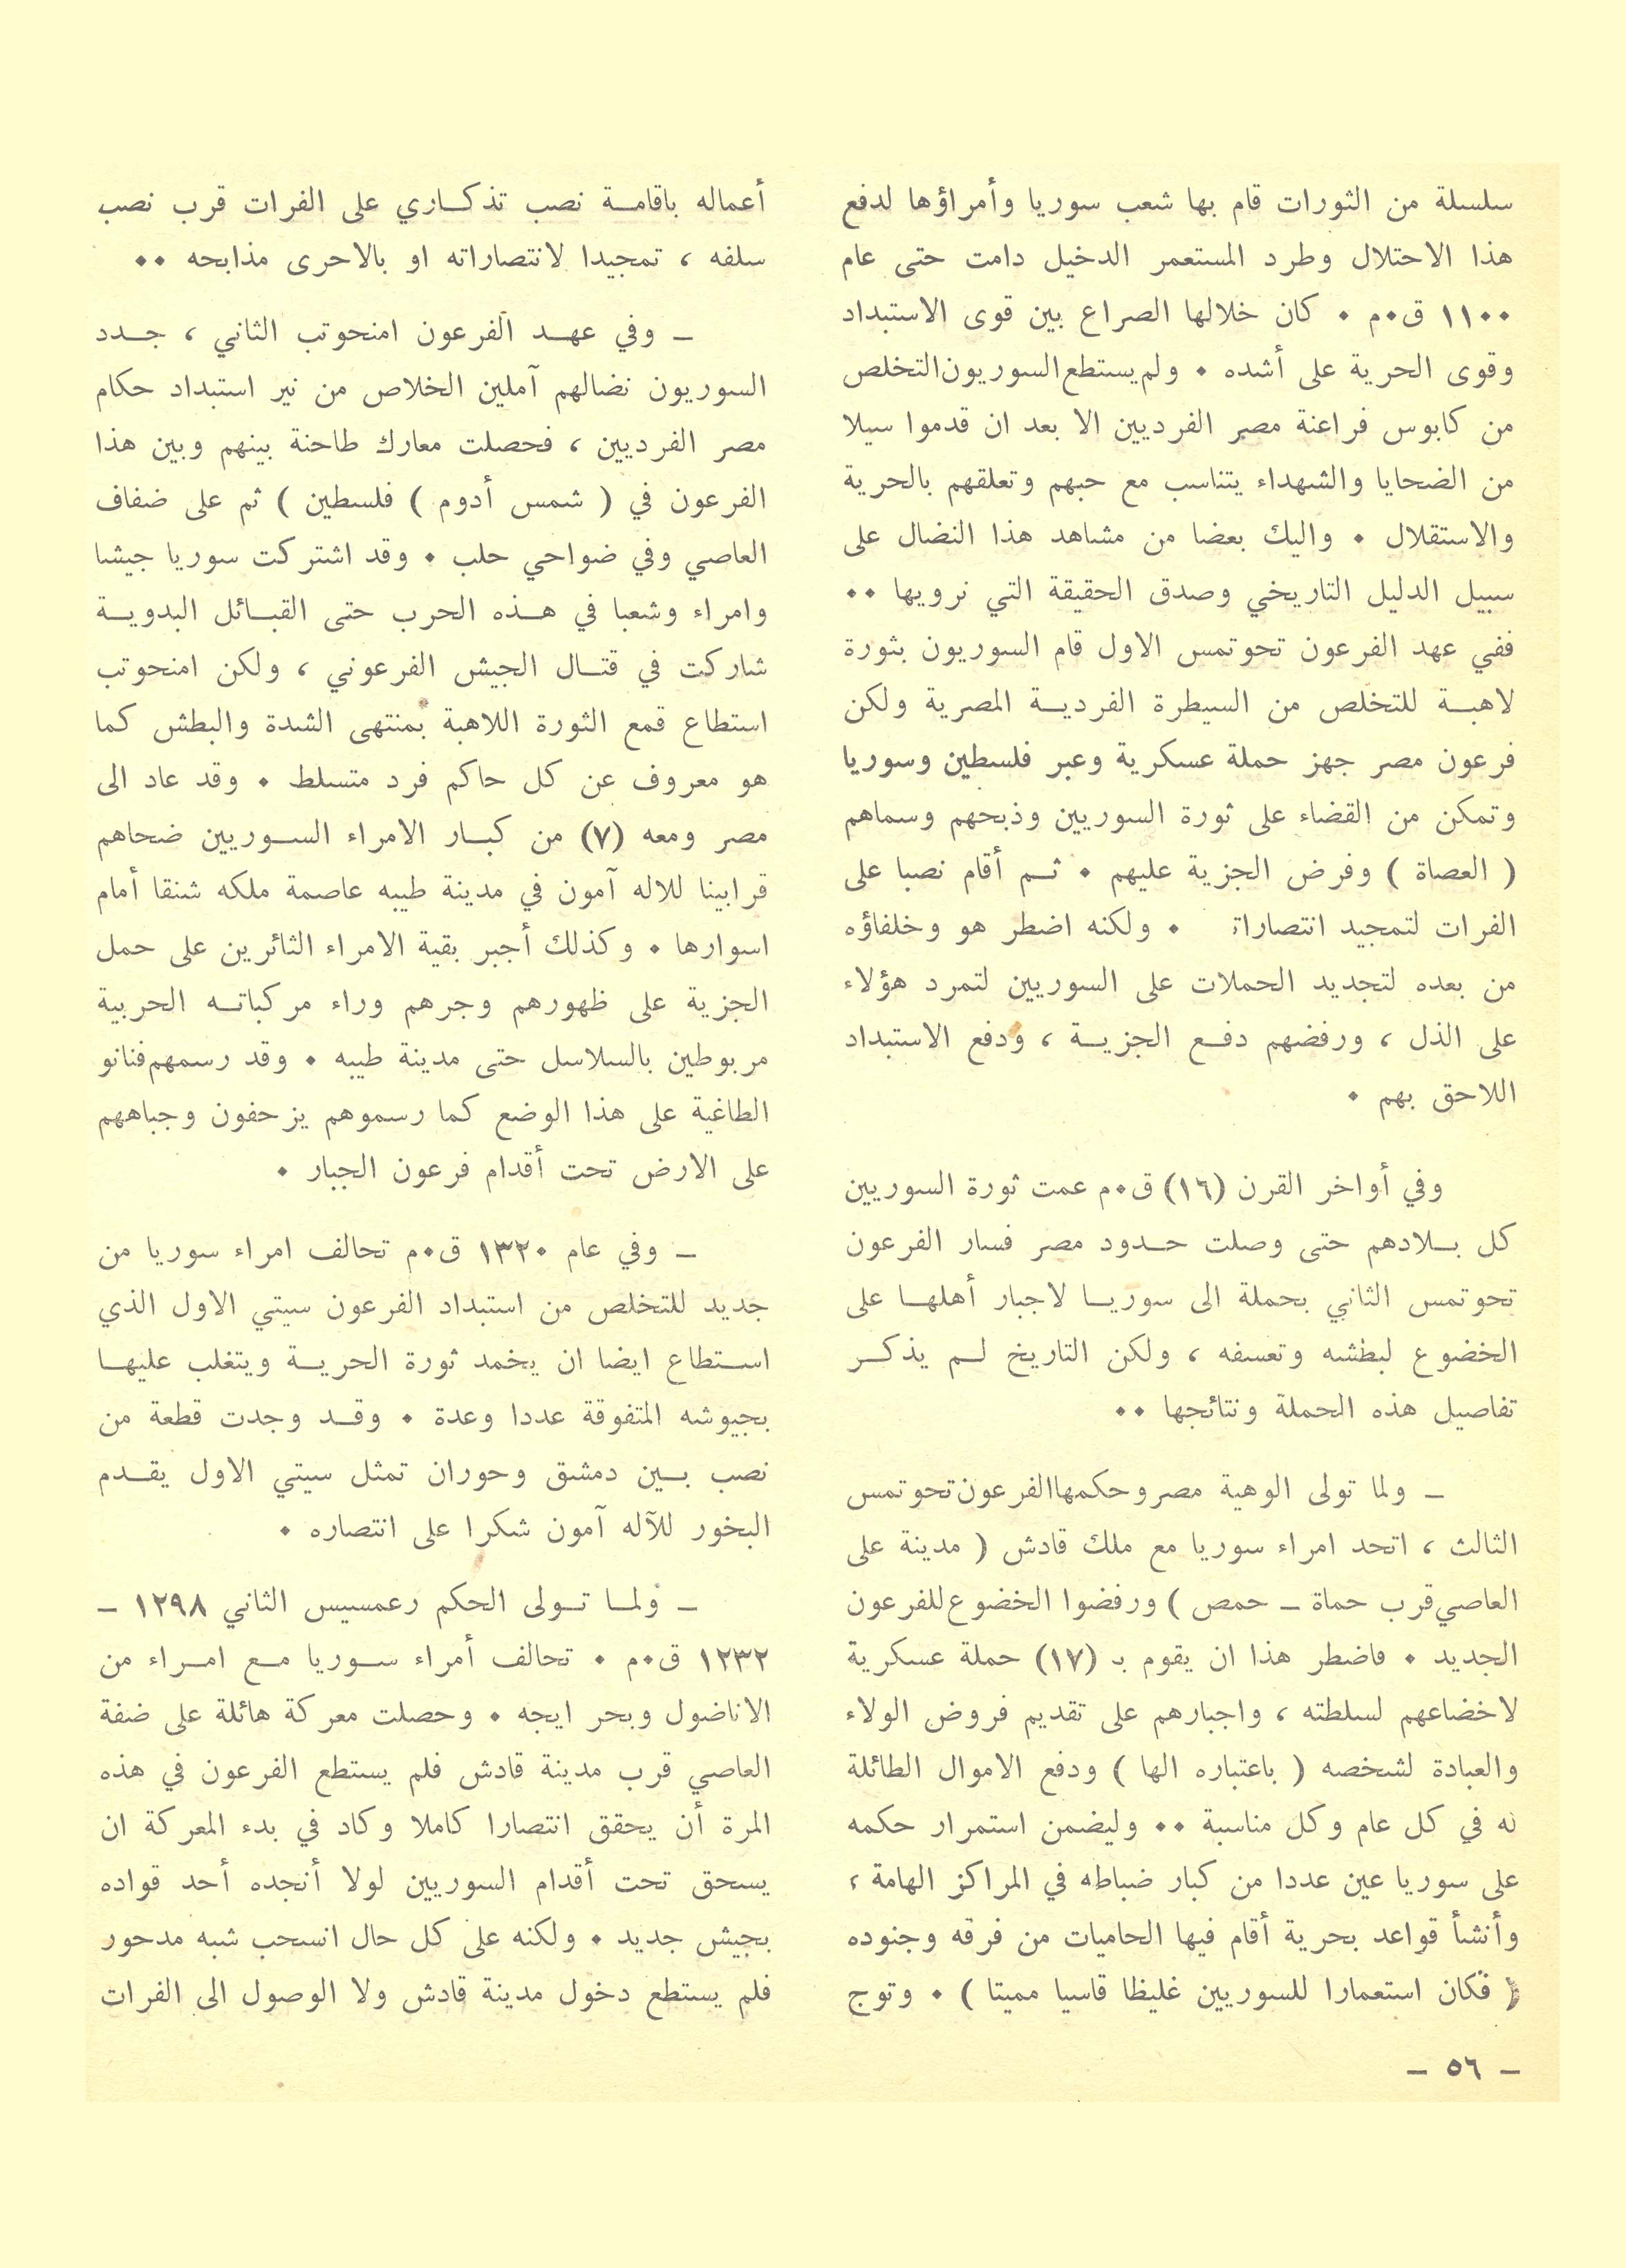 سلسلة من الثورات قام بها شعب سوريا وأمراؤها لدفع
هذا الاحتلال وطرد المستعمر الدخيل دامت حتى عام
١١٠٠ ق٠م ٠ كان خلالها الصراع بين قوى الاستبداد
وقوى الحرية على أشده ٠ ولم يستطع السوريون التخلص
من كابوس فراعنة مصر الفرديين الا بعد ان قدموا سيلا
من الضحايا والشهداء يتناسب مع حبهم وتعلقهم بالحرية
والاستقلال ٠ واليك بعضا من مشاهد هذا النضال على
سبيل الدليل التاريخي وصدق الحقيقة التي نرويها ٠٠
ففي عهد الفرعون تحوتمس الاول قام السوريون بثورة
لاهبة للتخلص من السيطرة الفردية المصرية ولكن
فرعون مصر جهز حملة عسكرية وعبر فلسطين وسوريا
وتمكن من القضاء على ثورة السوريين وذبحهم وسماهم
( العصاة ) وفرض الجزية عليهم ٠ ثم أقام نصبا على
الفرات لتمجيد انتصاراته ٠ ولكنه اضطر هو وخلفاؤه
من بعده لتجديد الحملات على السوريين لتمرد هؤلاء
على الذل ، ورفضهم دفع الجزية ، ودفع الاستبداد
اللاحق بهم ٠
وفي أواخر القرن (١٦) ق٠م عمت ثورة السوريين
كل بلادهم حتى وصلت حدود مصر فسار الفرعون
تحوتمس الثاني بحملة الى سوريا لاجبار أهلها على
الخضوع لبطشه وتعسفه ، ولكن التاريخ لم يذكر
تفاصيل هذه الحملة ونتائجها ٠٠
ـ ولما تولى الوهية مصر وحكمها الفرعون تحوتمس
الثالث ، اتحد امراء سوريا مع ملك قادش ( مدينة على
العاصي قرب حماة ـ حمص ) ورفضوا الخضوع للفرعون
الجديد ٠ فاضطر هذا ان يقوم بـ (١٧) حملة عسكرية
لاخضاعهم لسلطته ، واجبارهم على تقديم فروض الولاء
والعبادة لشخصه ( باعتباره الها ) ودفع الاموال الطائلة
له في كل عام وكل مناسبة ٠٠ وليضمن استمرار حكمه
على سوريا عين عددا من كبار ضباطه في المراكز الهامة ،
وأنشأ قواعد بحرية أقام فيها الحاميات من فرقه وجنوده
( فكان استعمارا للسوريين غليظا قاسيا مميتا ) ٠ وتوج
أعماله باقامة نصب تذكاري على الفرات قرب نصب
سلفه ، تمجيدا لانتصاراته او بالاحرى مذابحه ٠٠
ـ وفي عهد الفرعون امنحوتب الثاني ، جدد
السوريون نضالهم آملين الخلاص من نير استبداد حكام
مصر الفرديين ، فحصلت معارك طاحنة بينهم وبين هذا
الفرعون في ( شمس أدوم ) فلسطين ) ثم على ضفاف
العاصي وفي ضواحي حلب ٠ وقد اشتركت سوريا جيشا
وامراء وشعبا في هذه الحرب حتى القبائل البدوية
شاركت في قتال الجيش الفرعوني ، ولكن امنحوتب
استطاع قمع الثورة اللاهبة بمنتهى الشدة والبطش كما
هو معروف عن كل حاكم فرد متسلط ٠ وقد عاد الى
مصر ومعه (٧) من كبار الامراء السوريين ضحاهم
قرابينا للاله آمون في مدينة طيبه عاصمة ملكه شنقا أمام
اسوارها ٠ وكذلك أجبر بقية الامراء الثائرين على حمل
الجزية على ظهورهم وجرهم وراء مركباته الحربية
مربوطين بالسلاسل حتى مدينة طيبه ٠ وقد رسمهم فنانو
الطاغية على هذا الوضع كما رسموهم يزحفون وجباههم
على الارض تحت أقدام فرعون الجبار ٠
ـ وفي عام ١٣٢٠ ق٠م تحالف امراء سوريا من
جديد للتخلص من استبداد الفرعون سيتي الاول الذي
استطاع ايضا ان يخمد ثورة الحرية ويتغلب عليها
بجيوشه المتفوقة عددا وعدة ٠ وقد وجدت قطعة من
نصب بين دمشق وحوران تمثل سيتي الاول يقدم
البخور للآله آمون شكرا على انتصاره ٠
ـ ولما تولى الحكم رعمسيس الثاني ١٢٩٨ ـ
١٢٣٢ ق٠م ٠ تحالف أمراء سوريا مع امراء من
الاناضول وبحر ايجه ٠ وحصلت معركة هائلة على ضفة
العاصي قرب مدينة قادش فلم يستطع الفرعون في هذه
المرة أن يحقق انتصارا كاملا وكاد في بدء المعركة ان
يسحق تحت أقدام السوريين لولا أنجده أحد قواده
بجيش جديد ٠ ولكنه على كل حال انسحب شبه مدحور
فلم يستطع دخول مدينة قادش ولا الوصول الى الفرات
ـ ٥٦ ـ